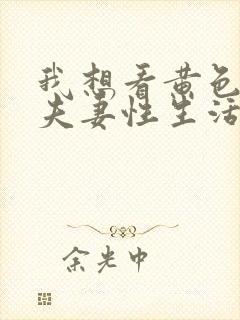 我想看黄色
夫妻性生活
余光中